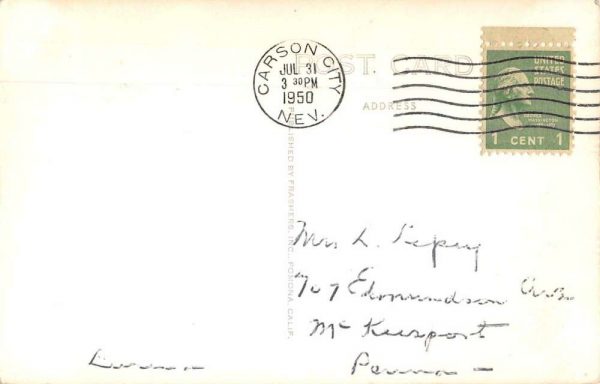 POST CARD
ADDRESS
CARSON CITY
JUL 31
3 30 PM
1950
NEV.
UNITED
STATES
POSTAGE
GEORGE
WASHINGTON
1 CENT 1
PUBLISHED BY FRASHERS, INC., POMONA, CALIF.
Mrs L.
707 Edmundson Ave.
Mc Keesport
Penna -